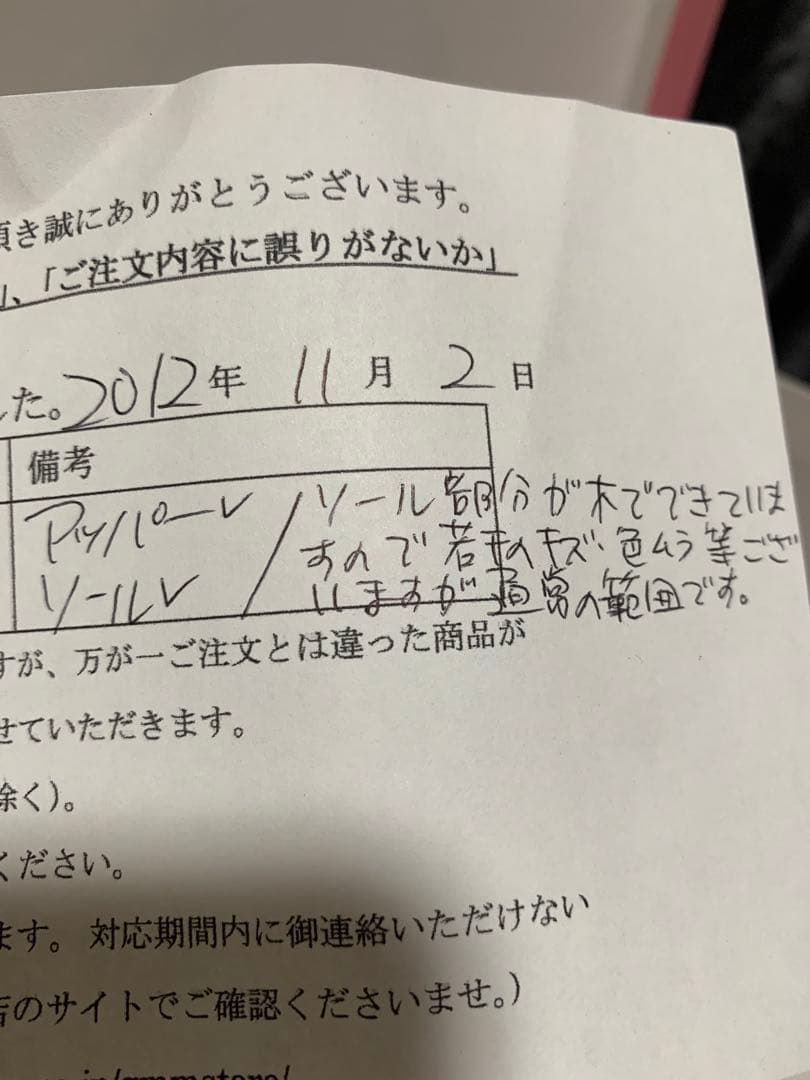 頂き誠にありがとうございます。
、「ご注文内容に誤りがないか」
した。2012年 11月 2日
備考
アッパーレ / ソール部分が木でできていま
すので若干のキズ・色ムラ等ござ
ソールレ いますが通常の範囲です。
すが、万が一ご注文とは違った商品が
せていただきます。
除く)。
ください。
ます。対応期間内に御連絡いただけない
店のサイトでご確認くださいませ。)